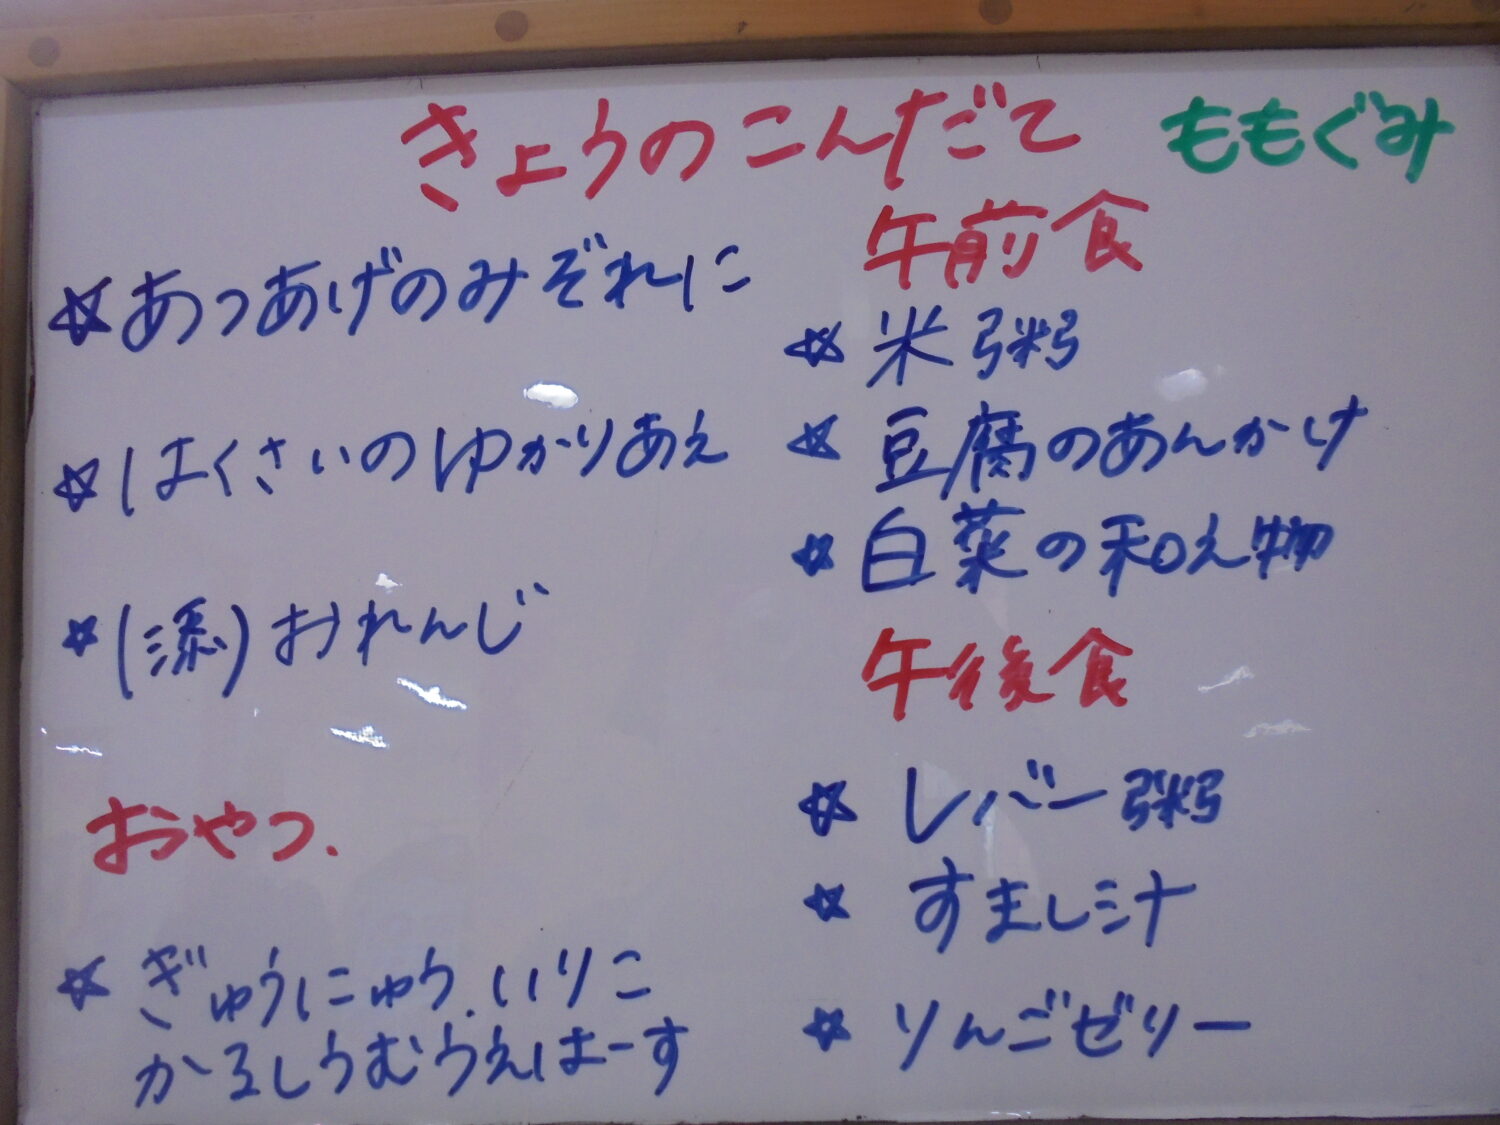 きょうのこんだて ももぐみ
☆あつあげのみぞれに
☆はくさいのゆかりあえ
☆(添)おれんじ
おやつ.
☆ぎゅうにゅう.いりこ
かるしうむうえはーす
午前食
☆米粥
☆豆腐のあんかけ
☆白菜の和え物
午後食
☆レバー粥
☆すまし汁
☆りんごゼリー